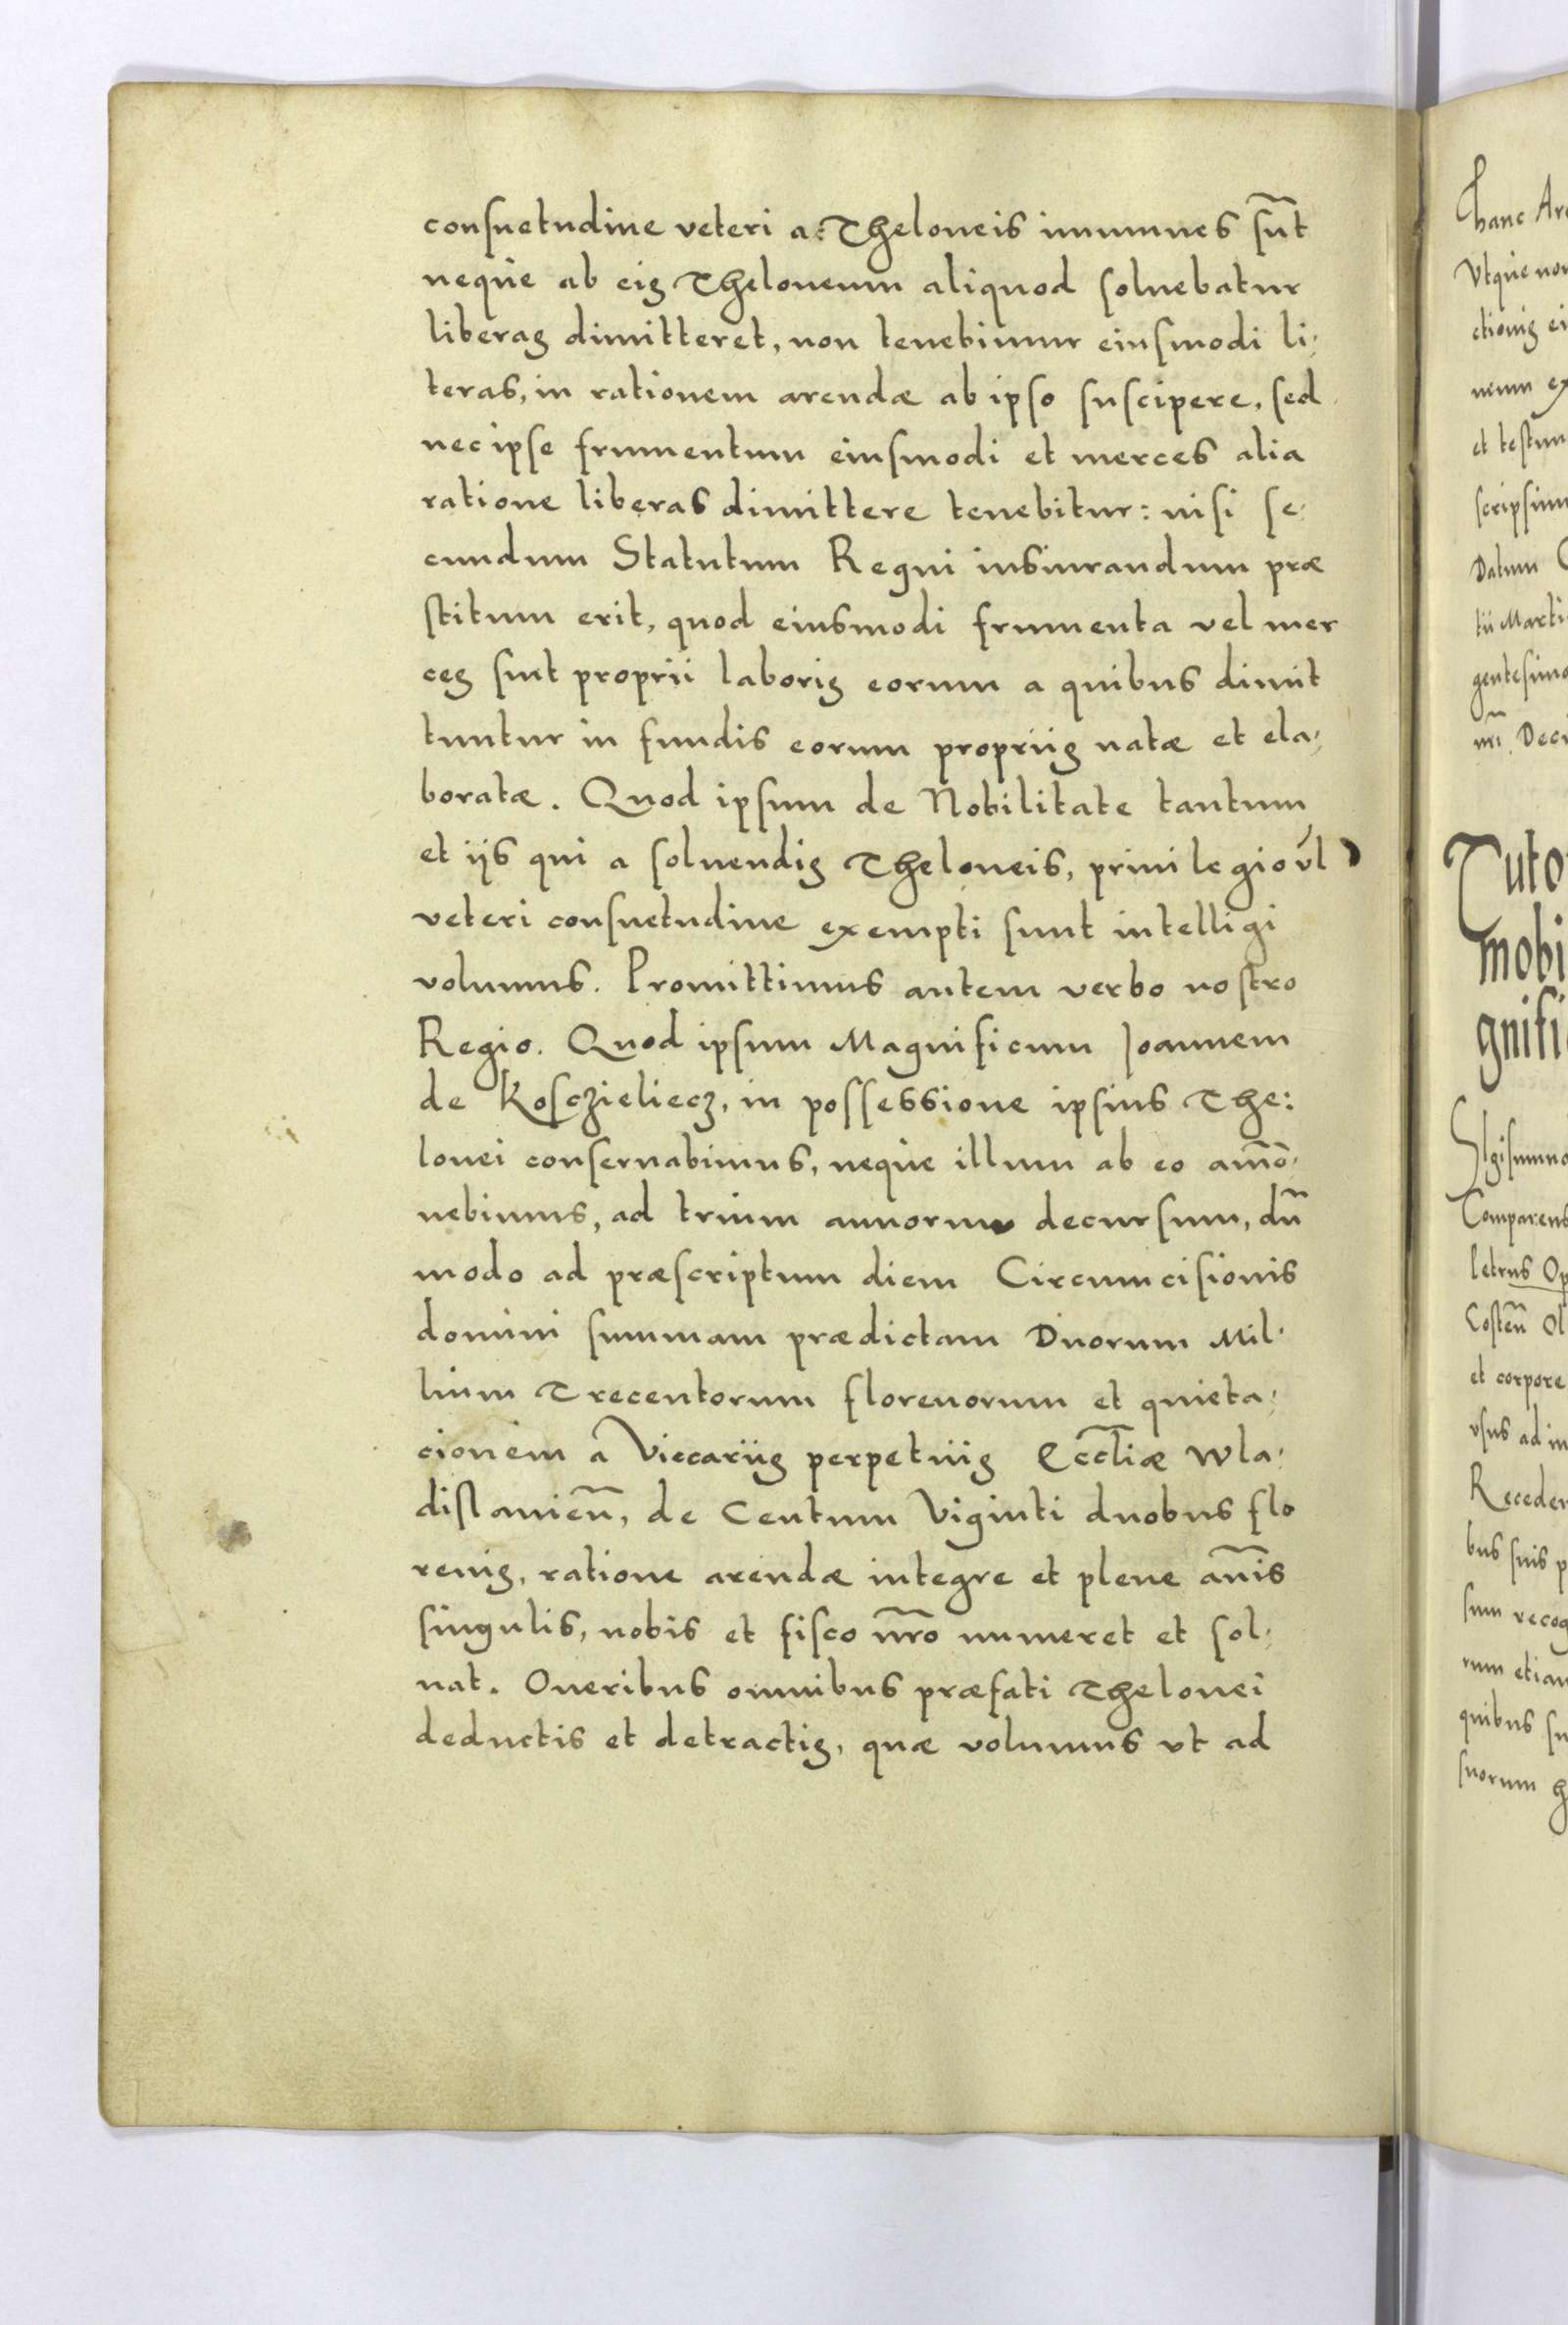 consuetudine veteri a Theloneis immunes sūt
neque ab eis Theloneum aliquod soluebatur
liberas dimitteret, non tenebimur eiusmodi li,
teras, in rationem arendæ ab ipso suscipere, sed
nec ipse frumentum eiusmodi et merces alia
ratione liberas dimittere tenebitur: nisi se,
cundum Statutum Regni iusiurandum præ
stitum erit, quod eiusmodi frumenta vel mer
ces sint proprii laboris eorum a quibus dimit
tuntur in fundis eorum propriis natæ et ela,
boratæ. Quod ipsum de Nobilitate tantum
et iis qui a soluendis Theloneis, priuilegio vl
veteri consuetudine exempti sunt intelligi
volumus. Promittimus autem verbo nostro
Regio. Quod ipsum Magnificum Joannem
de Kosczieliecz, in possessione ipsius The:
lonei conseruabimus, neque illum ab eo am̄o,
uebimus, ad trium annorum decursum, dū
modo ad præscriptum diem Circumcisionis
domini summam prædictam Duorum Mil,
lium Trecentorum florenorum et quieta,
cionem a Viccariis perpetuis Eccłiæ Wla,
dislauieñ, de Centum Viginti duobus flo
renis, ratione arendæ integre et plene an̄is
singulis, nobis et fisco nr̄o numeret et sol,
uat. Oneribus omnibus præfati Thelonei
deductis et detractis, quæ volumus vt ad
hanc
Vtque
ctionis
neum
et
Datum
tii Marti
Tuto
mobi
gnifi
Comparens
letrus
et corpore
vsus ad
Receden
bus suis
sum recog
rum etiam
quibus
suorum